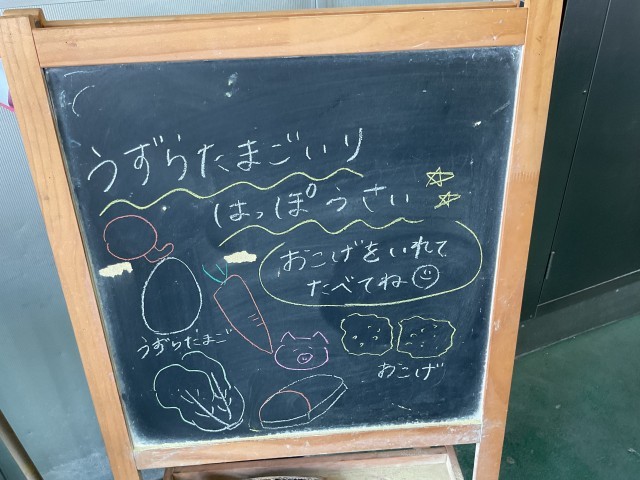 うずらたまごいり
はっぽうさい
おこげをいれて
たべてね
うずらだまご
おこげ